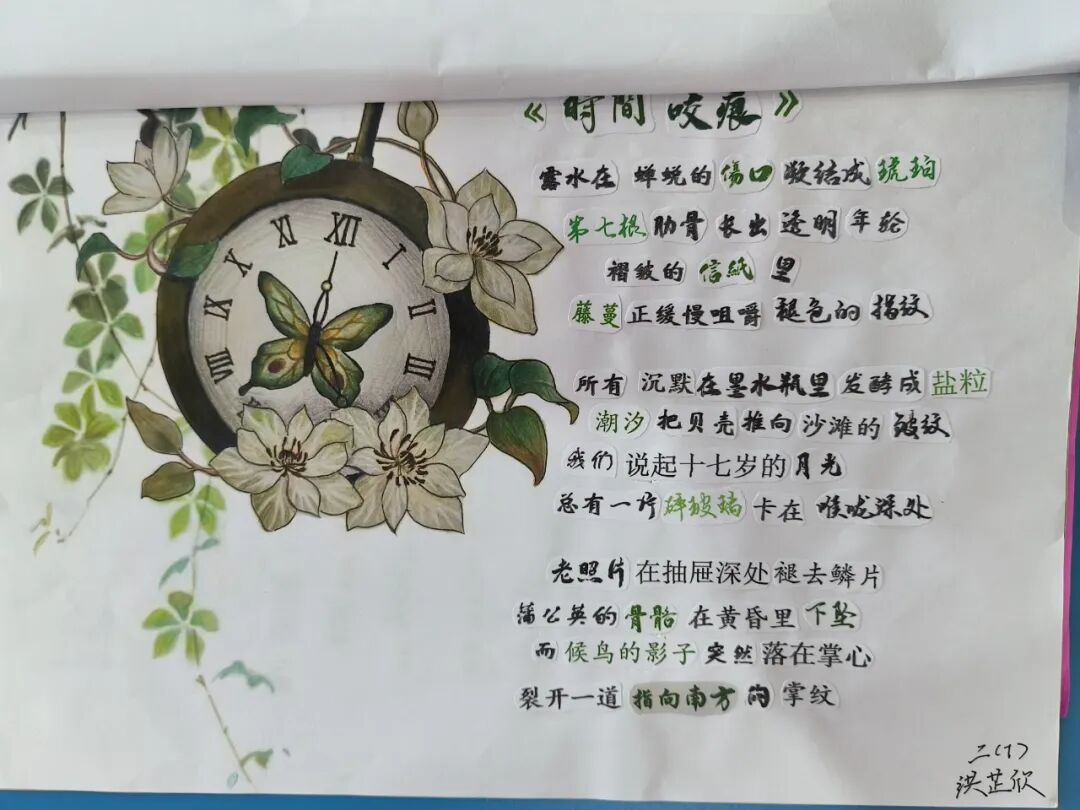 《時間咬痕》
露水在蝉蜕的傷口凝结成琥珀
第七根肋骨长出透明年轮
褶皱的信紙里
藤蔓正缓慢咀嚼褪色的指纹
所有沉默在墨水瓶里发酵成盐粒
潮汐把贝壳推向沙滩的皱纹
我们说起十七岁的月光
总有一片碎玻璃卡在喉咙深处
老照片在抽屉深处褪去鳞片
蒲公英的骨骼在黄昏里下坠
而候鸟的影子突然落在掌心
裂开一道指向南方的掌纹
XII
I
II
III
VIII
IX
X
XI
二(1)
洪芷欣